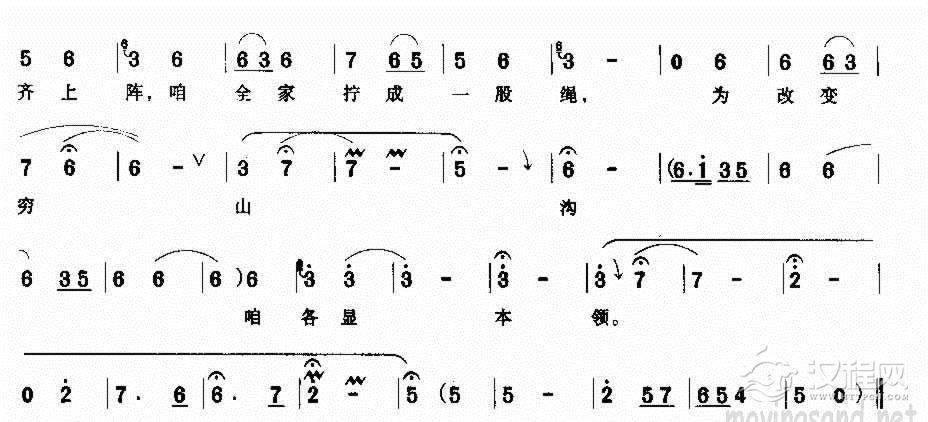 5 6 | 3 6 | 6 3 6 | 7 6 5 | 5 6 | 3 - | 0 6 | 6 6 3 |
齐上 阵，咱 全家 拧成 一股 绳， 为 改变
7 6 | 6 - ∨ | 3 7 | 7 - | 5 - | 6 - | (6. i 3 5 | 6 6 |
穷 山 沟
6 3 5 | 6 6 | 6 ) 6 | 3 3 | 3 - | 3 - | 3 7 | 7 - | 2 - |
咱 各显 本 领。
0 2 | 7. 6 | 6. 7 | 2 - | 5 ( 5 | 5 - | 2 5 7 | 6 5 4 | 5 0 ) ‖
汉程网
WWW.HTTPCN.COM
movingsand.net